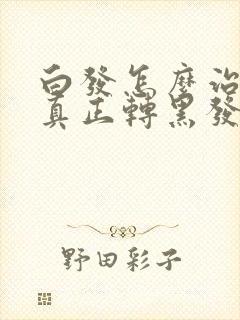 白發怎麼治
真正轉黑發
野田彩子